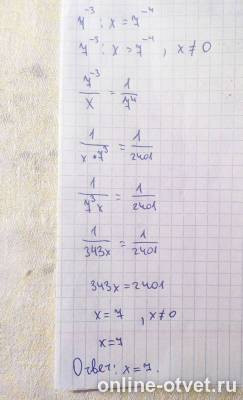 7⁻³ : x = 7⁻⁴
7⁻³ : x = 7⁻⁴ , x ≠ 0
7⁻³/x = 1/7⁴
1/(x · 7³) = 1/2401
1/(7³x) = 1/2401
1/(343x) = 1/2401
343x = 2401
x = 7 , x ≠ 0
x = 7
Ответ: x = 7.
online-otvet.ru